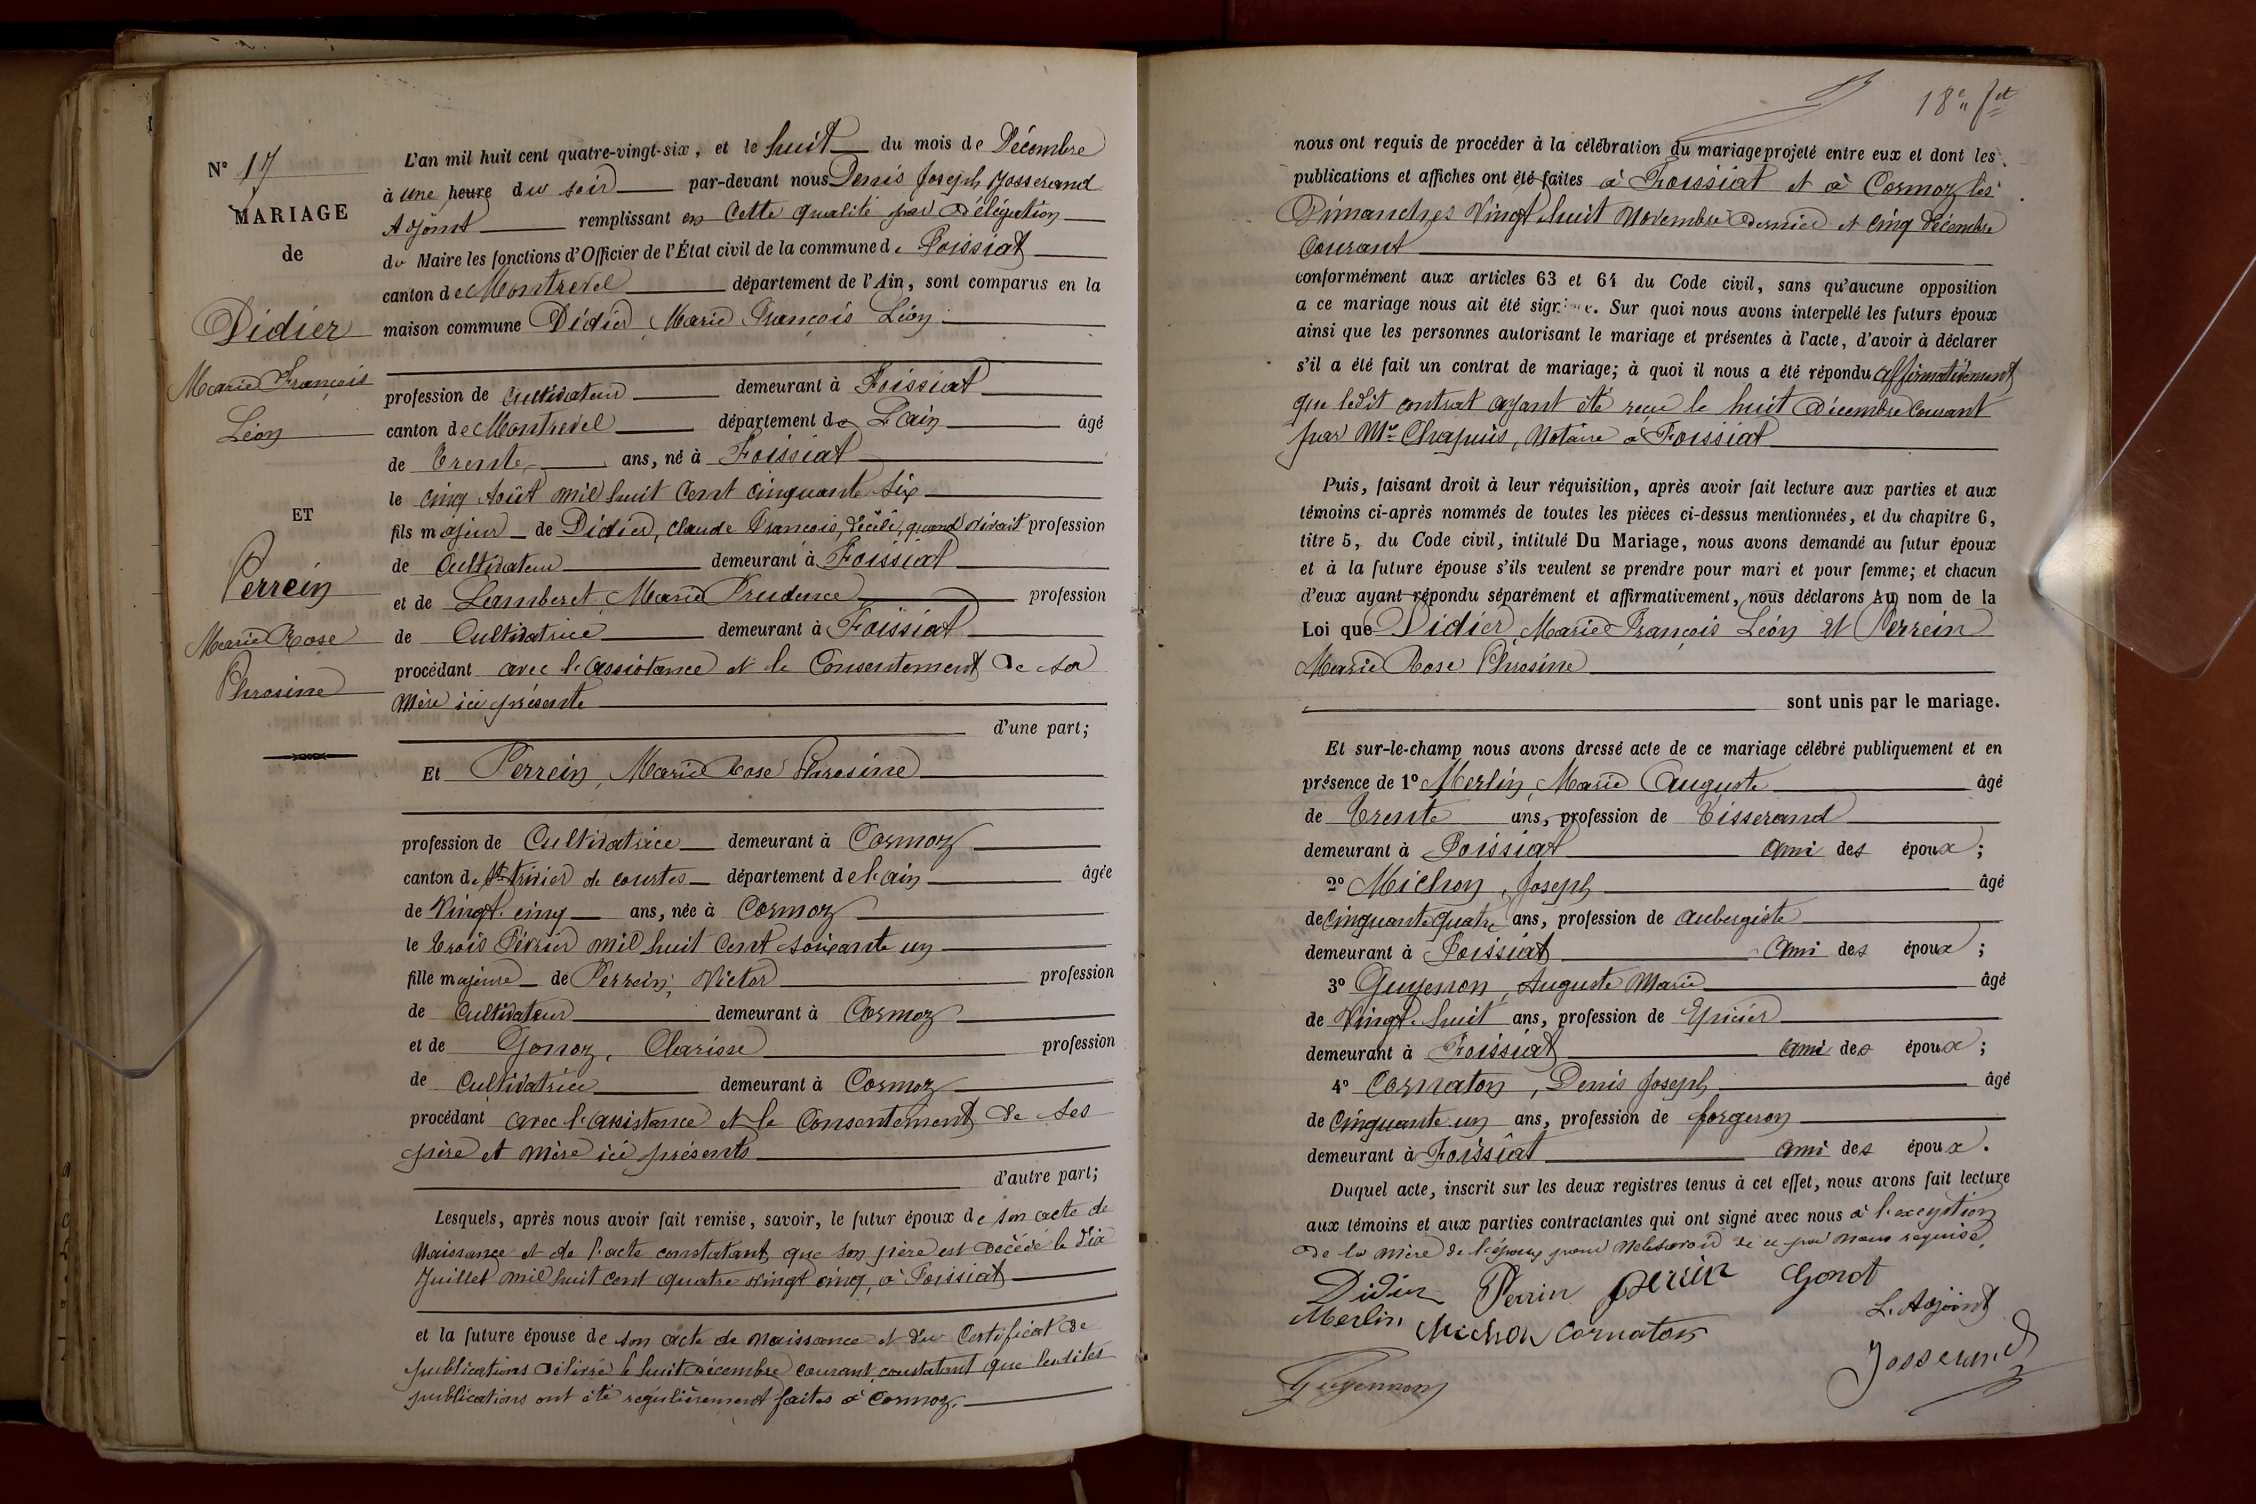 N° 17
MARIAGE
de
Didier
Marie François
Léon
ET
Perrein
Marie Rose
Phrosine
L'an mil huit cent quatre-vingt-six, et le huit du mois de Décembre
à une heure du soir par-devant nous Denis Joseph Josserand
Adjoint remplissant en cette qualité par délégation
du Maire les fonctions d'Officier de l'État civil de la commune de Foissiat
canton de Montrevel département de l'Ain, sont comparus en la
maison commune Didier, Marie François Léon
profession de cultivateur demeurant à Foissiat
canton de Montrevel département de L'ain âgé
de trente ans, né à Foissiat
le cinq Août mil huit cent cinquante six
fils majeur de Didier, Claude François, décédé, quand vivait profession
de Cultivateur demeurant à Foissiat
et de Lamberet, Marie Prudence profession
de Cultivatrice demeurant à Foissiat
procédant avec l'assistance et le Consentement de sa
mère ici présente
d'une part;
Et Perrein, Marie Rose Phrosine
profession de Cultivatrice demeurant à Cormoz
canton de St trivier de courtes département de l'ain âgée
de Vingt-cinq ans, née à Cormoz
le trois Février mil huit cent soixante un
fille majeure de Perrein, Victor profession
de Cultivateur demeurant à Cormoz
et de Gonoz, Clarisse profession
de Cultivatrice demeurant à Cormoz
procédant avec l'assistance et le Consentement de ses
père et mère ici présents
d'autre part;
Lesquels, après nous avoir fait remise, savoir, le futur époux de son acte de
Naissance et de l'acte constatant que son père est décédé le dix
Juillet mil huit cent quatre vingt cinq, à Foissiat
et la future épouse de son acte de naissance et du Certificat de
publications délivré le huit Décembre courant constatant que lesdites
publications ont été regulièrement faites à Cormoz.
18e ft
nous ont requis de procéder à la célébration du mariage projeté entre eux et dont les
publications et affiches ont été faites à Foissiat et à Cormoz les
Dimanches Vingt huit Novembre dernier et cinq décembre
Courant
conformément aux articles 63 et 64 du Code civil, sans qu'aucune opposition
a ce mariage nous ait été signifiée. Sur quoi nous avons interpellé les futurs époux
ainsi que les personnes autorisant le mariage et présentes à l'acte, d'avoir à déclarer
s'il a été fait un contrat de mariage; à quoi il nous a été répondu affirmativement
que ledit contrat ayant été reçu le huit Décembre Courant
par Me Chapuis, Notaire à Foissiat
Puis, faisant droit à leur réquisition, après avoir fait lecture aux parties et aux
témoins ci-après nommés de toutes les pièces ci-dessus mentionnées, et du chapitre 6,
titre 5, du Code civil, intitulé Du Mariage, nous avons demandé au futur époux
et à la future épouse s'ils veulent se prendre pour mari et pour femme; et chacun
d'eux ayant répondu séparément et affirmativement, nous déclarons Au nom de la
Loi que Didier, Marie François Léon et Perrein
Marie Rose Phrosine
sont unis par le mariage.
Et sur-le-champ nous avons dressé acte de ce mariage célébré publiquement et en
présence de 1° Merlin, Marie Auguste âgé
de trente ans, profession de Tisserand
demeurant à Foissiat ami des époux;
2° Michon, Joseph âgé
de Cinquante quatre ans, profession de aubergiste
demeurant à Foissiat ami des époux;
3° Guyenon, Auguste Marie âgé
de Vingt huit ans, profession de Epicier
demeurant à Foissiat ami des époux;
4° Cornaton, Denis Joseph âgé
de Cinquante un ans, profession de forgeron
demeurant à Foissiat ami des époux.
Duquel acte, inscrit sur les deux registres tenus à cet effet, nous avons fait lecture
aux témoins et aux parties contractantes qui ont signé avec nous à l'exception
de la mère de l'époux pour ne le savoir de ce par nous requise.
Didier Perrin perrin Gonot
Merlin Michon Cornaton L. Adjoint
Guyennon Josserand